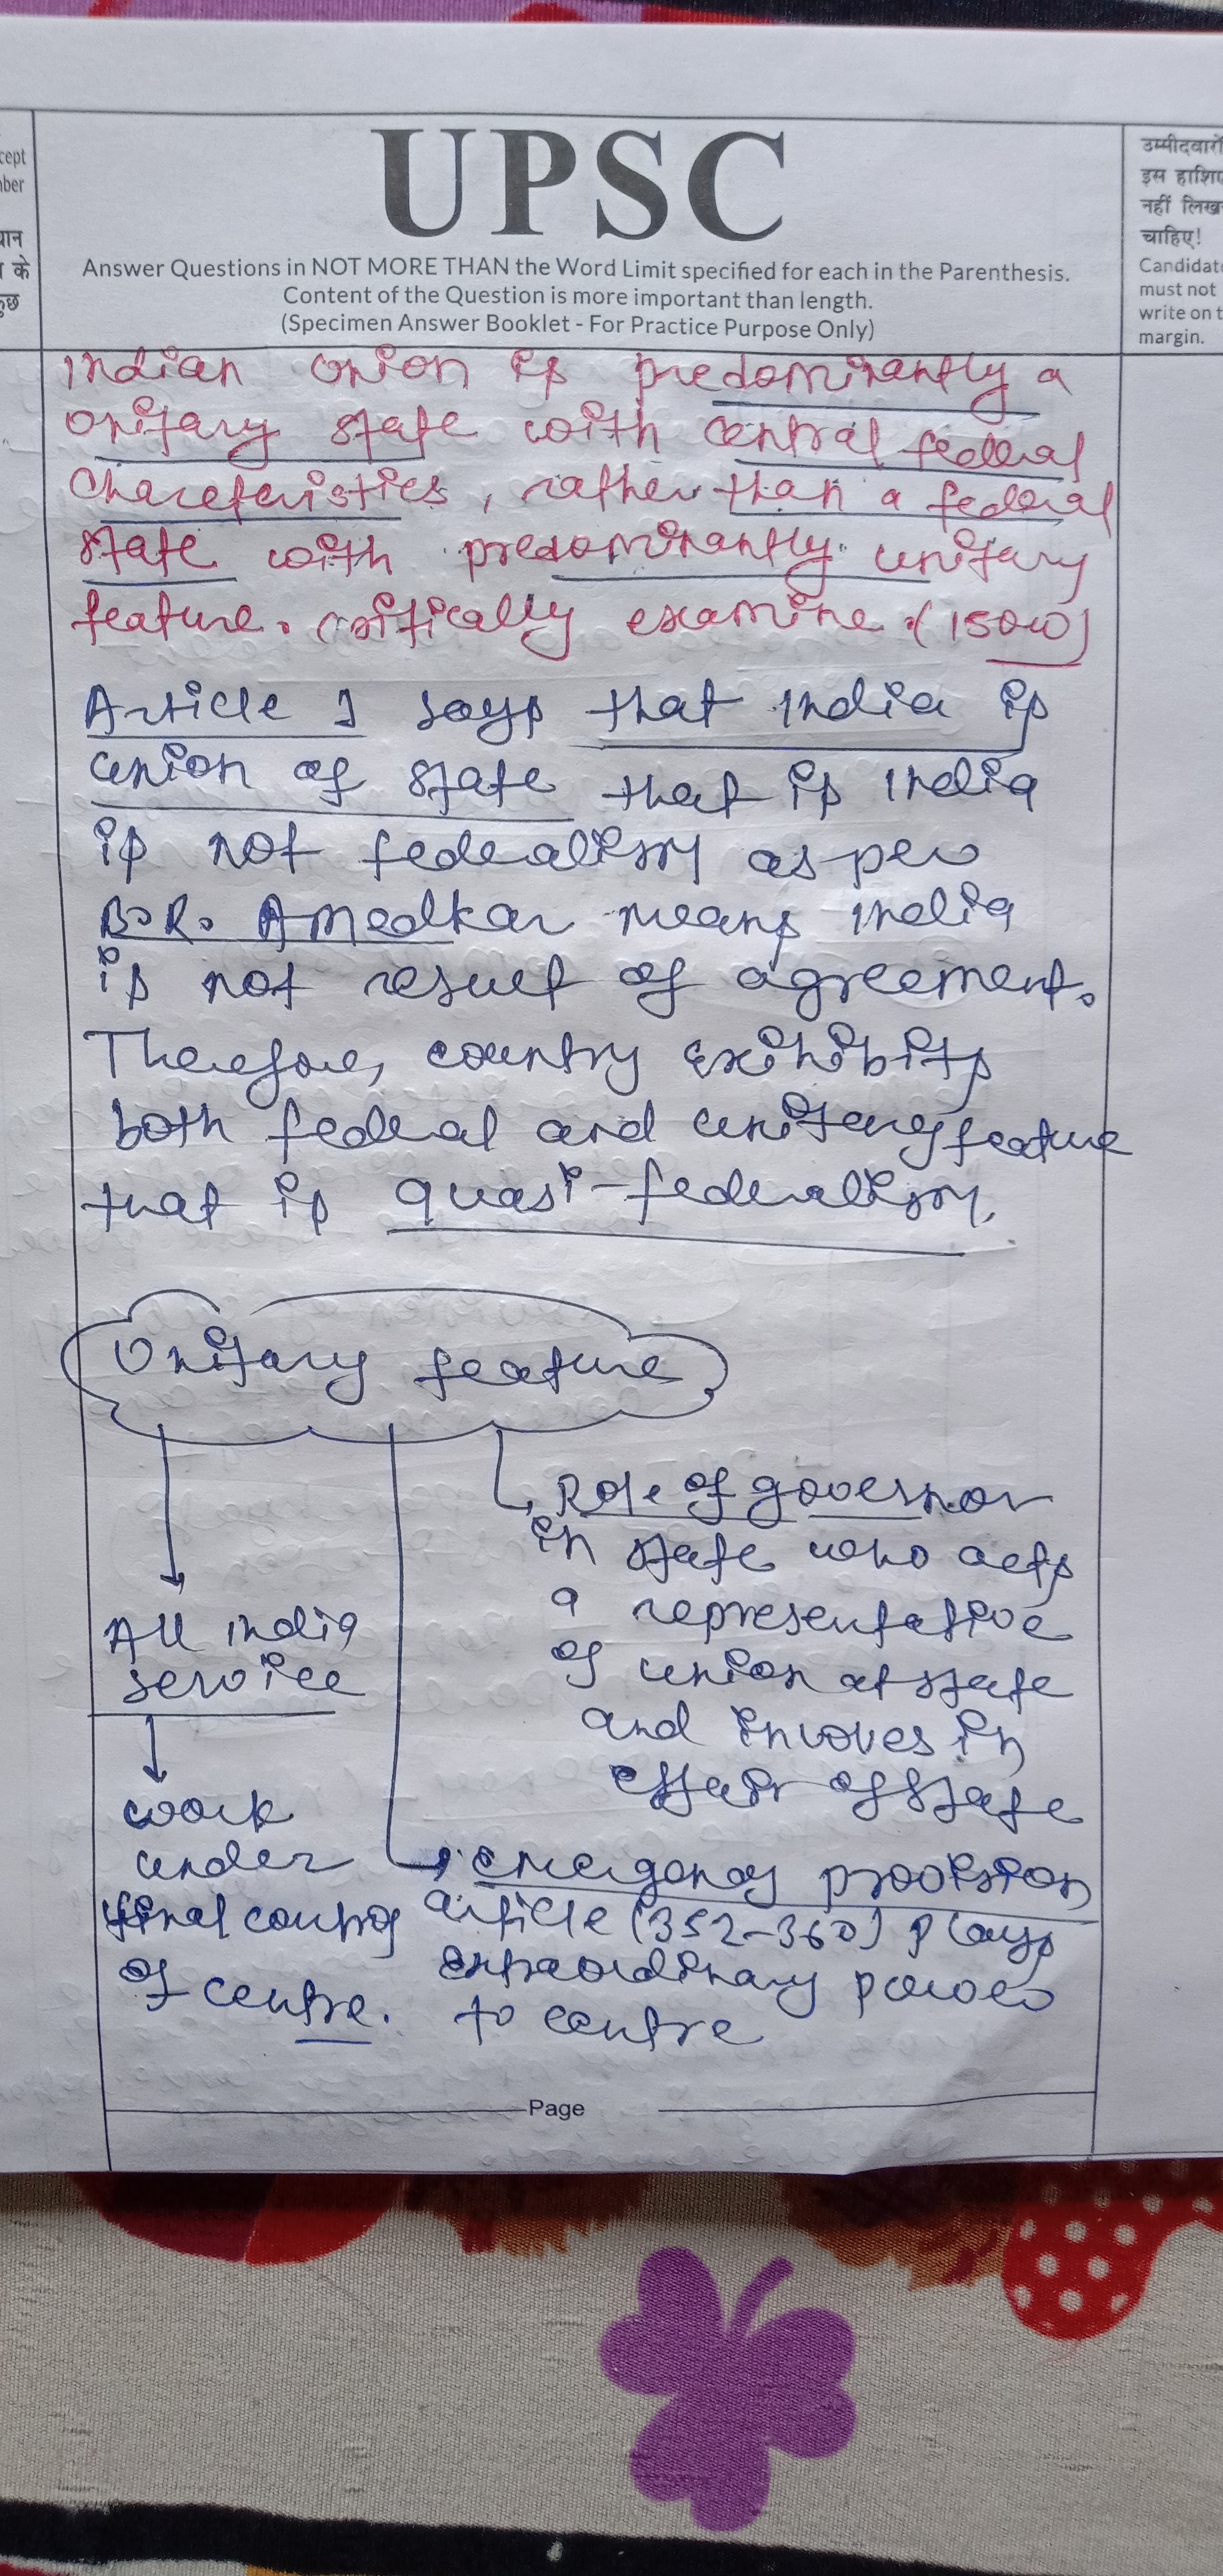 cept
ber
UPSC
Answer Questions in NOT MORE THAN the Word Limit specified for each in the Parenthesis.
Content of the Question is more important than length.
(Specimen Answer Booklet - For Practice Purpose Only)
उम्मीदवारों
इस हाशिए
नहीं लिखन
चाहिए!
Candidate
must not
write on t
margin.
Indian Union is predominantly a
Unitary state with central federal
Charecteristics, rather than a federal
state with predominantly unitary
feature. critically examine. (150w)
Article 1 says that India is
union of state that is India
is not federalism as per
B.R. Amedkar means India
is not result of agreement.
Therefore, country exihibits
both federal and unitary feature
that is quasi-federalism.
Unitary feature
Role of governor
in state who acts
a representative
of union at state
and invoves in
affair of state
All India
service
work
under
final of
of centre.
emergency provision
article (352-360) plays
extraordinary power
to centre
Page